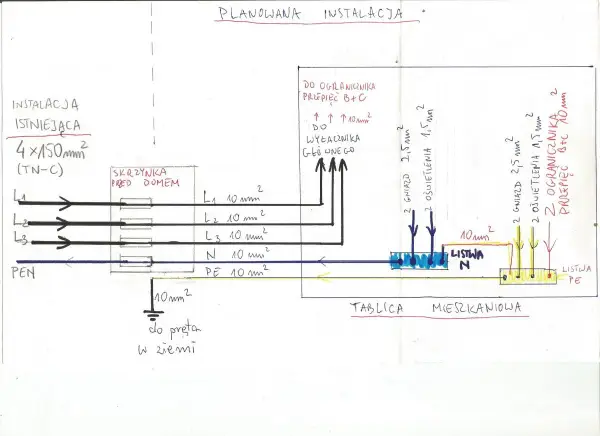 PLANOWANA INSTALACJA
INSTALACJA
ISTNIEJĄCA
4×150mm²
(TN-C)
L1
L2
L3
PEN
SKRZYNKA
PRZED DOMEM
L1 10mm²
L2 10mm²
L3 10mm²
N 10mm²
PE 10mm²
10mm²
do pręta
w ziemi
DO OGRANICZNIKA
PRZEPIĘĆ B+C
10mm²
DO
WYŁĄCZNIKA
GŁÓWNEGO
Z GNIAZD 2,5mm²
Z OŚWIETLENIA 1,5mm²
LISTWA
N
10mm²
Z GNIAZD 2,5mm²
Z OŚWIETLENIA 1,5mm²
Z OGRANICZNIKA
PRZEPIĘĆ B+C 10mm²
LISTWA
PE
TABLICA MIESZKANIOWA